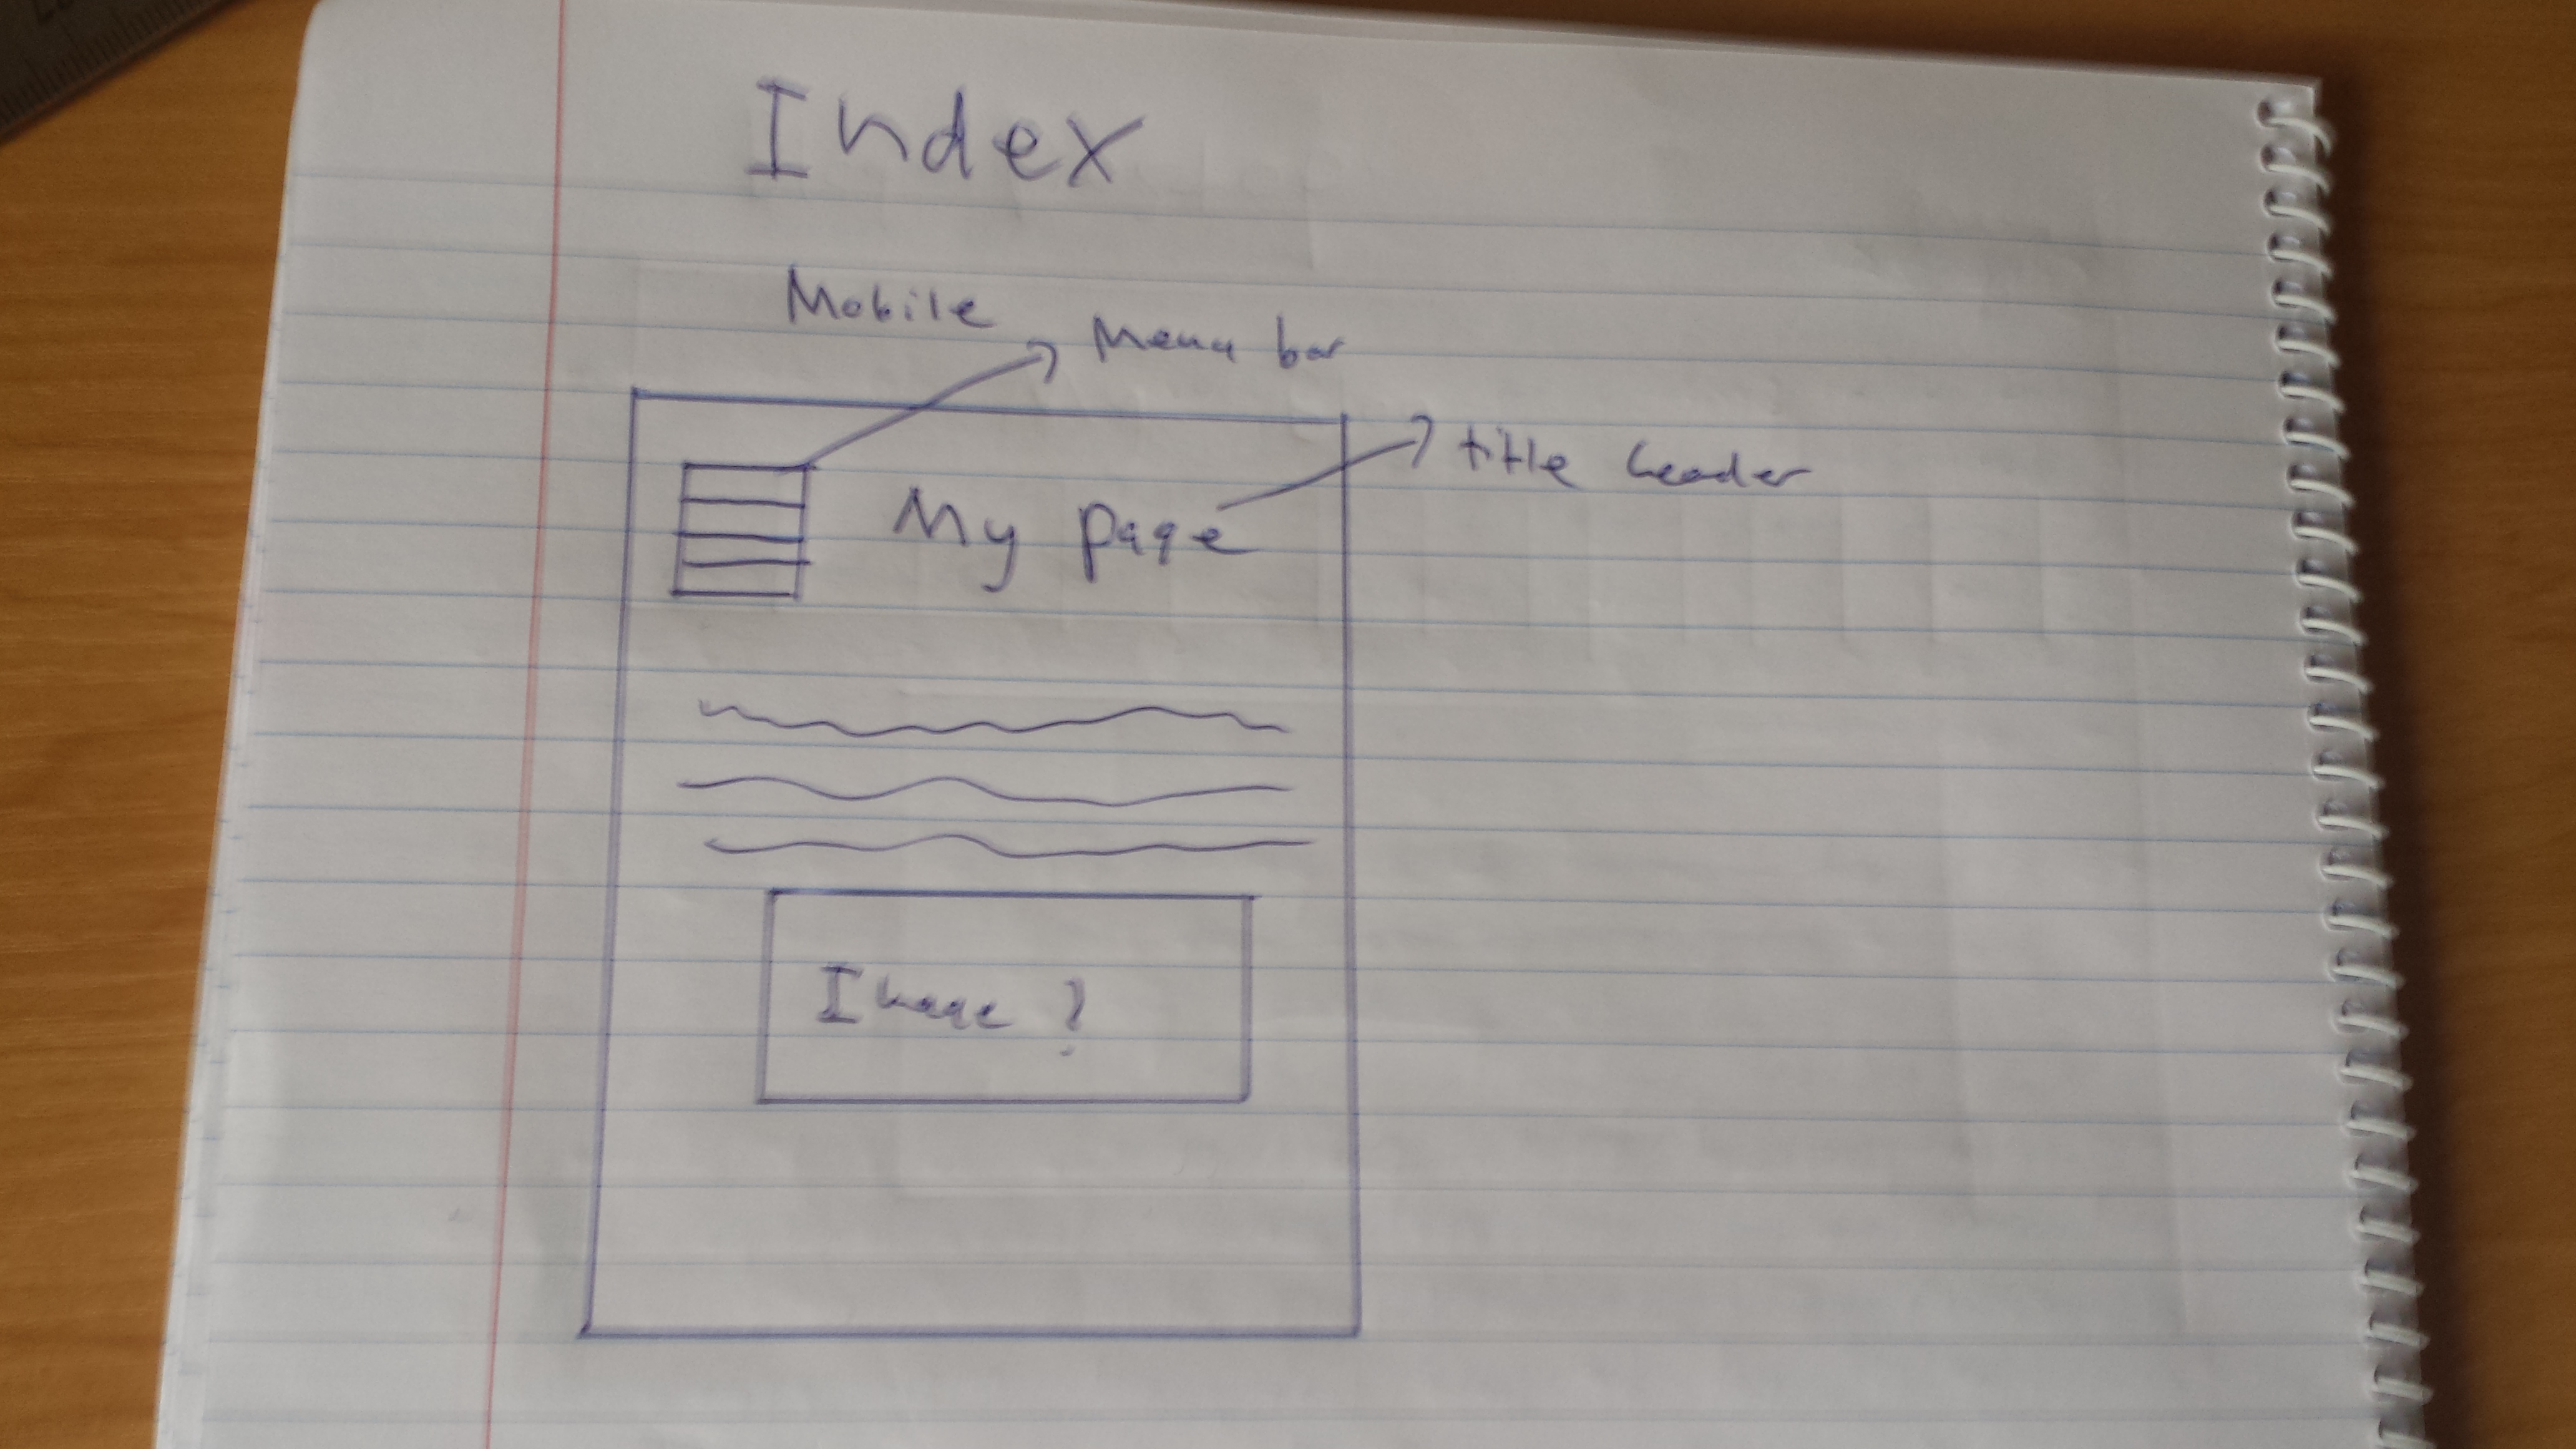 Index
Mobile
Menu bar
title header
My page
Image ?